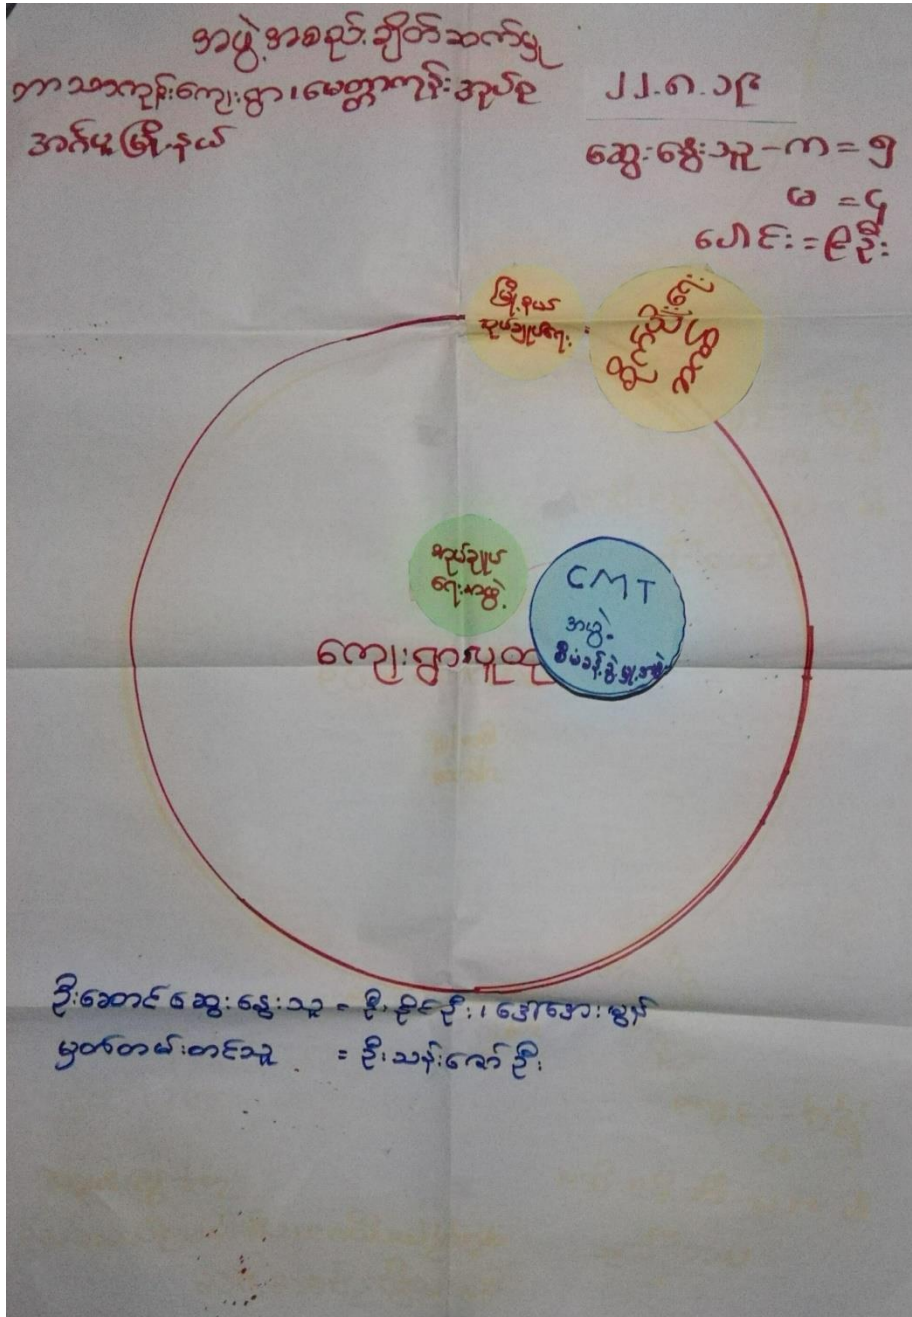 အဖွဲ့အစည်းချိတ်ဆက်မှု
ဘာသာကုန်းကျေးရွာ၊ မေတ္တာကုန်းအုပ်စု
အင်္ဂပူမြို့နယ်
၂၂.၈.၁၉
ဆွေးနွေးသူ - ကာ = ၅
မ = ၄
ပေါင်း = ၉ ဦး
မြို့နယ်
အုပ်ချုပ်ရေး
အုပ်ချုပ်
ရေးအဖွဲ့
CMT
အဖွဲ့
စီမံခန့်ခွဲမှုအဖွဲ့
ကျေးရွာလူထု
ဦးဆောင်ဆွေးနွေးသူ = ဦးခိုင်ဦး၊ ဒေါ်အေးစွန်
မှတ်တမ်းတင်သူ = ဦးသန်းဇော်ဦး